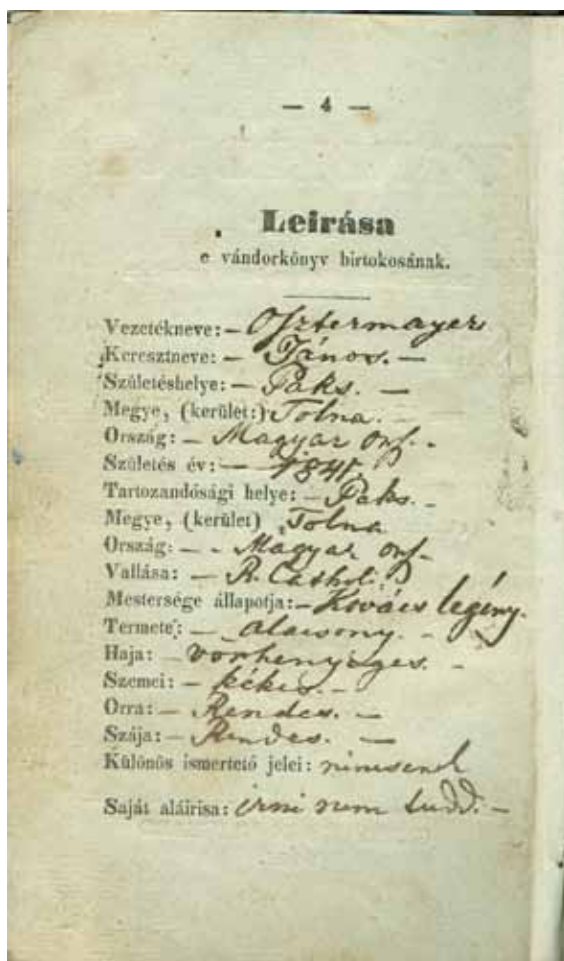 — 4 —
Leirása
e vándorkönyv birtokosának.
Vezetékneve: – Osztermayer
Keresztneve: – János. –
Születéshelye: – Paks. –
Megye, (kerület:) Tolna. –
Ország: – Magyar orsz. –
Születés év: – 1841.
Tartozandósági helye: – Paks. –
Megye, (kerület) Tolna
Ország: – – Magyar orsz –
Vallása: – R. Catholi
Mestersége állapotja: – Kovács legény.
Termete: – alacsony. –
Haja: – vörhenyeges. –
Szemei: – kékes. –
Orra: – Rendes. –
Szája: – Rendes. –
Különös ismertető jelei: nincsenek
Saját aláirisa: irni nem tudd. –